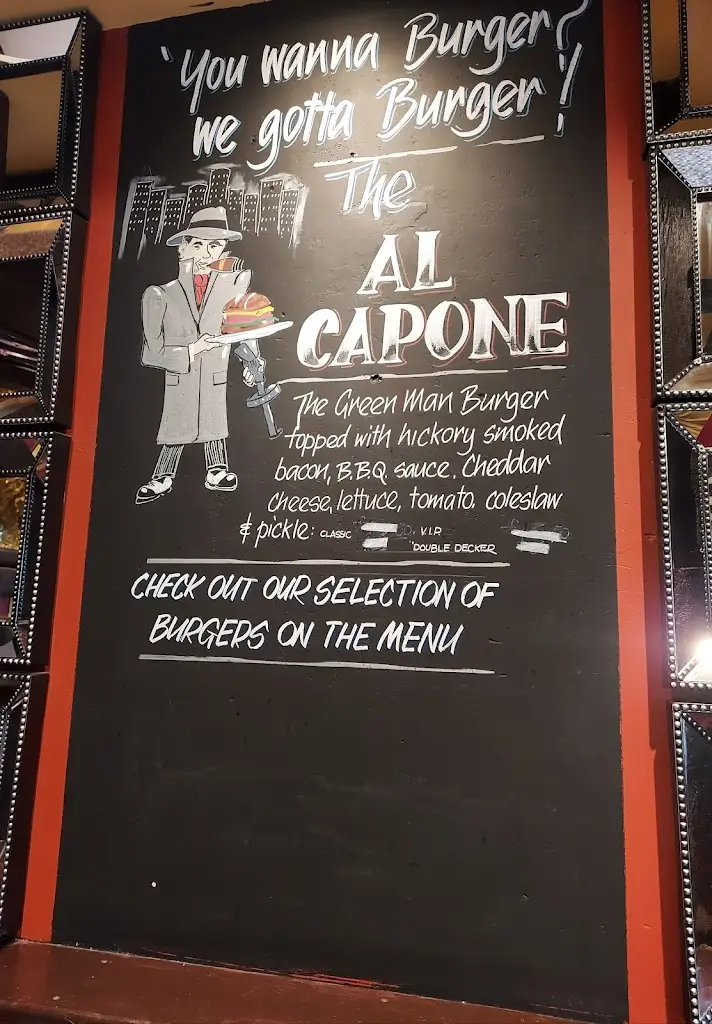 'You wanna Burger?
we gotta Burger'!
The
AL
CAPONE
The Green Man Burger
topped with hickory smoked
bacon, B.B.Q. sauce. Cheddar
cheese, lettuce, tomato. coleslaw
& pickle: CLASSIC V.I.P.
"DOUBLE DECKER
CHECK OUT OUR SELECTION OF
BURGERS ON THE MENU